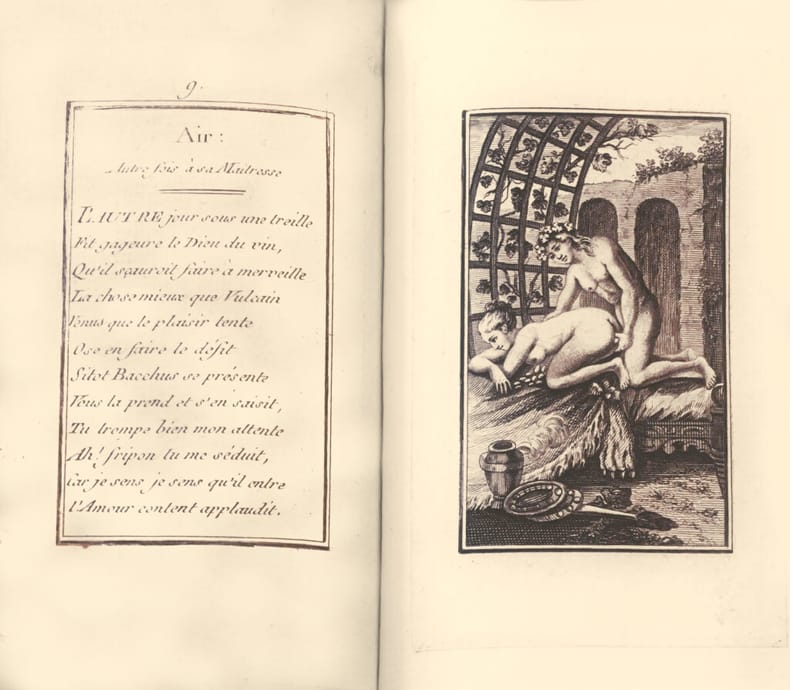 9.
Air :
Autre fois à sa Maitresse
L'AUTRE jour sous une treille
Fit gageure le Dieu du vin,
Qu'il sçauroit faire à merveille
La chose mieux que Vulcain
Venus que le plaisir tente
Ose en faire le défit
Sitot Bacchus se présente
Vous la prend et s'en saisit,
Tu trompe bien mon attente
Ah! fripon tu me séduit,
Car je sens je sens qu'il entre
l'Amour content applaudit.